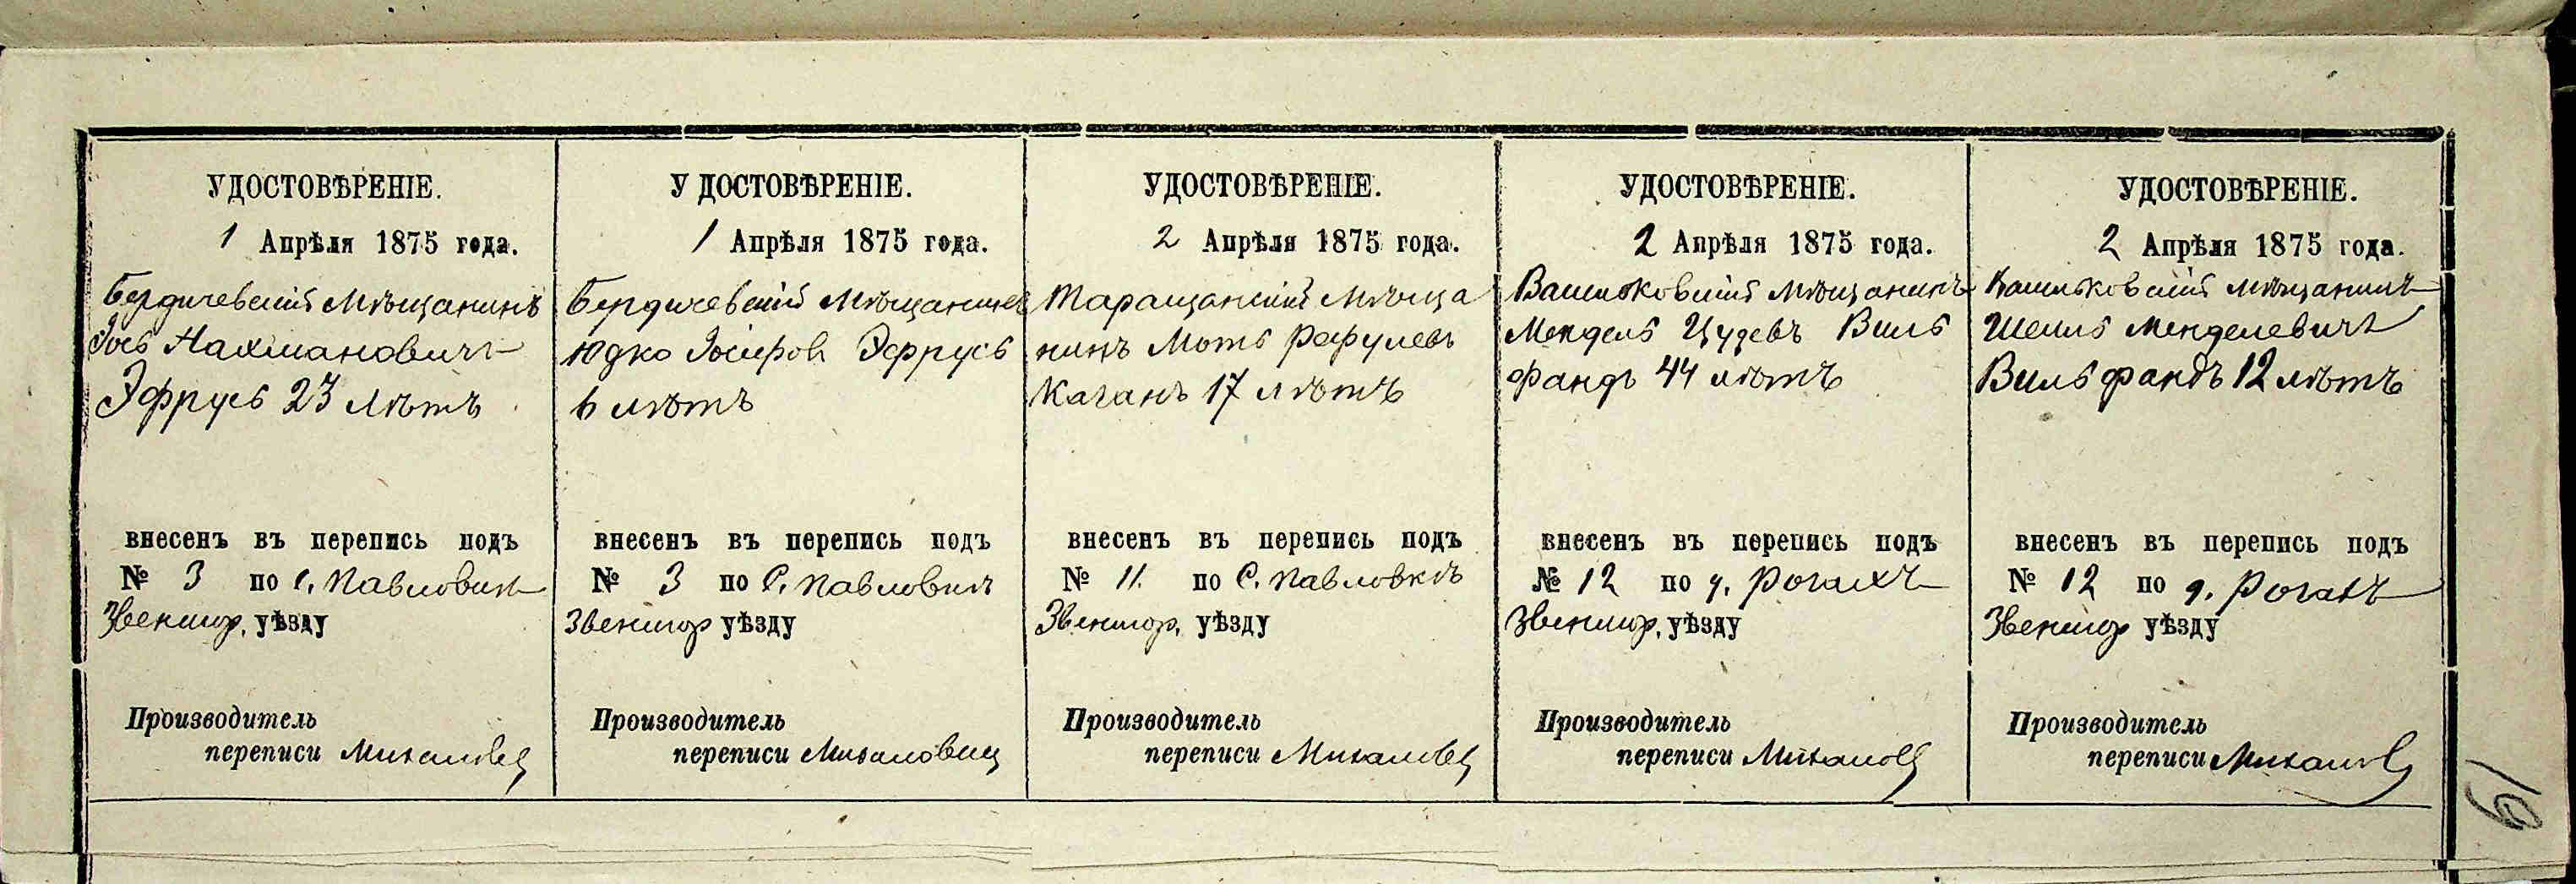 УДОСТОВѢРЕНІЕ.
1 Апрѣля 1875 года.
Бердичевскій Мѣщанинъ
Іось Нахмановичъ
Эфрусь 23 лѣтъ
внесенъ въ перепись подъ
№ 3 по с. Павловкѣ
Звенигор. уѣзду
Производитель
переписи
УДОСТОВѢРЕНІЕ.
1 Апрѣля 1875 года.
Бердичевскій Мѣщанинъ
Юдко Іосифов Эфрусь
6 лѣтъ
внесенъ въ перепись подъ
№ 3 по С. Павловкѣ
Звенигор уѣзду
Производитель
переписи
УДОСТОВѢРЕНІЕ.
2 Апрѣля 1875 года.
Таращанскій Мѣща
нинъ Моть Рафулевъ
Каганъ 17 лѣтъ
внесенъ въ перепись подъ
№ 11. по С. Павловкѣ
Звенигор. уѣзду
Производитель
переписи
УДОСТОВѢРЕНІЕ.
2 Апрѣля 1875 года.
Васильковскій мѣщанинъ
Мендель Цудевъ Виль
фандъ 44 лѣтъ
внесенъ въ перепись подъ
№ 12 по д. Рогахъ
Звенигор. уѣзду
Производитель
переписи
УДОСТОВѢРЕНІЕ.
2 Апрѣля 1875 года.
Васильковскій мѣщанинъ
Шмиль Менделевичъ
Вильфандъ 12 лѣтъ
внесенъ въ перепись подъ
№ 12 по д. Рогахъ
Звенигор уѣзду
Производитель
переписи
19